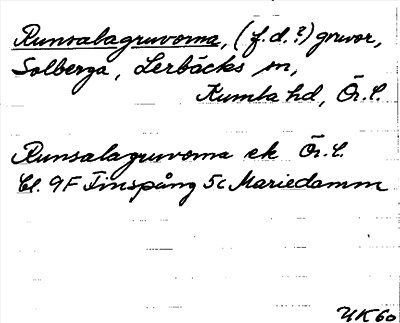 Runsalagruvorna, (f.d.?) gruvor,
Solberga, Lerbäcks sn,
Kumla hd, Ör. l.
Runsalagruvorna ek Ör. l.
Bl. 9F Finspång 5c Mariedamm
UK60